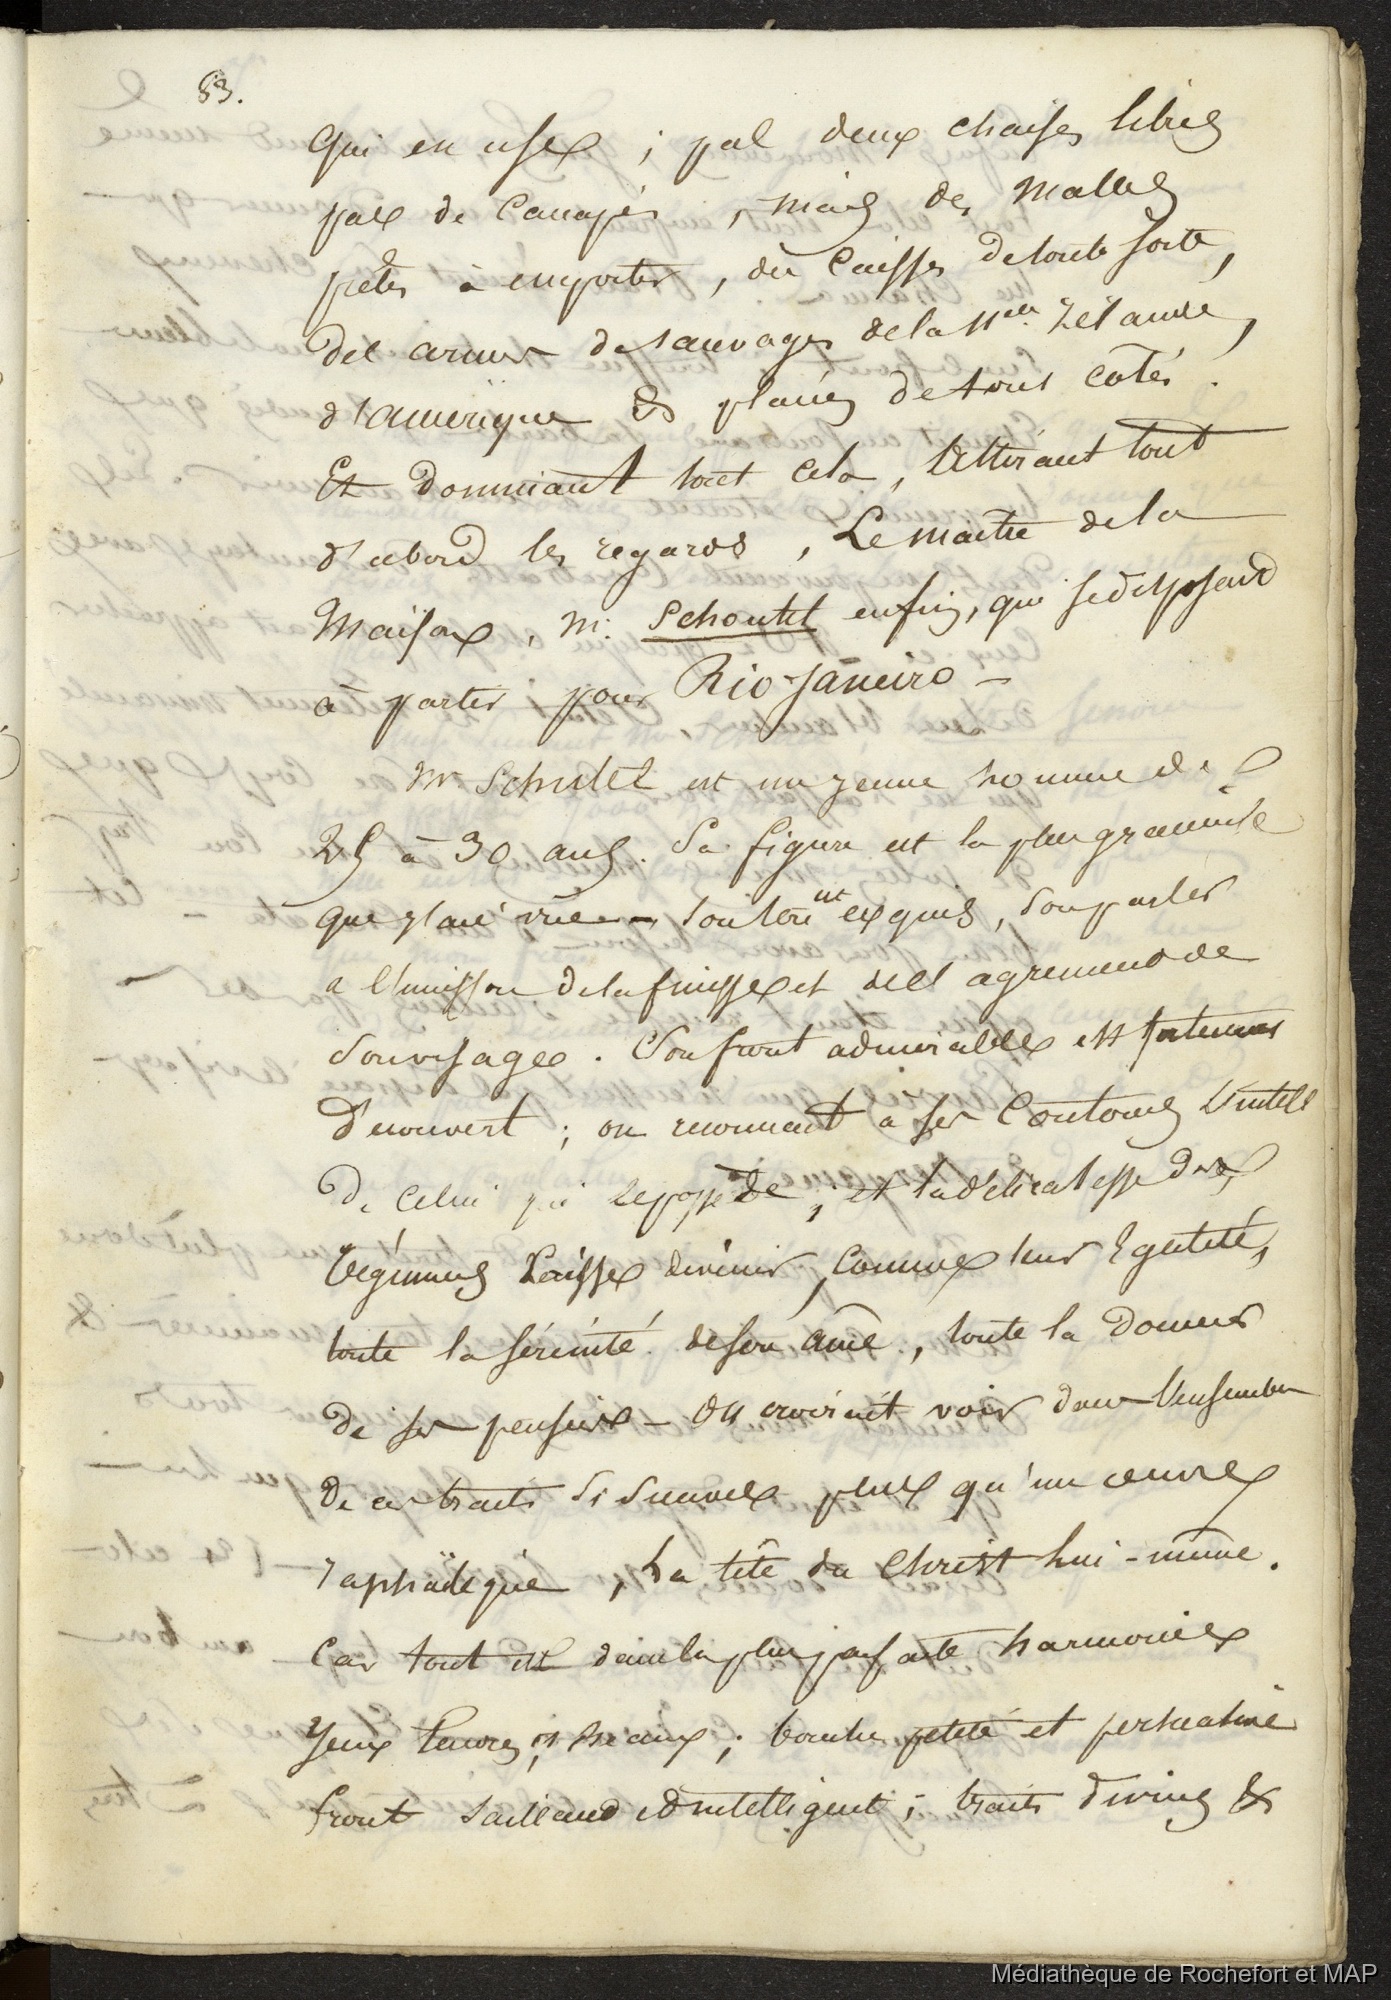 83.
Qui en usent ; pas deux chaises libres
pas de canapés, mais des malles
prêtes à emporter, des caisses de toute sorte,
des armes de sauvages de la Nlle Zélande,
d'amérique &c placées de tous côtés.
Et dominant tout cela, attirant tout
d'abord les regards, Le maître de la
Maison, M. Schoutet enfin, qui se disposait
à partir pour Rio-Janeiro -
Mr Schutet est un jeune homme de
25 à 30 ans. Sa figure est la plus gracieuse
que j'aie vue - son ton est exquis, son parler
a l'unisson de la finesse et de l'agrement de
son visage. Son front admirable est
Découvert ; on reconnaît a ses Contours
De celui qui le possède ; et la délicatesse des
laisse deviner, comme leur
toute la sérénité de son âme, toute la douceur
De ses pensées - On croirait voir dans l'ensemble
De ces traits si suaves plus qu'une œuvre
raphaëlique, La tête du Christ lui-même.
Car tout est dans la plus parfaite harmonie
Yeux ; bouche petite et
front saillant et intelligent ; traits divins &
Médiathèque de Rochefort et MAP